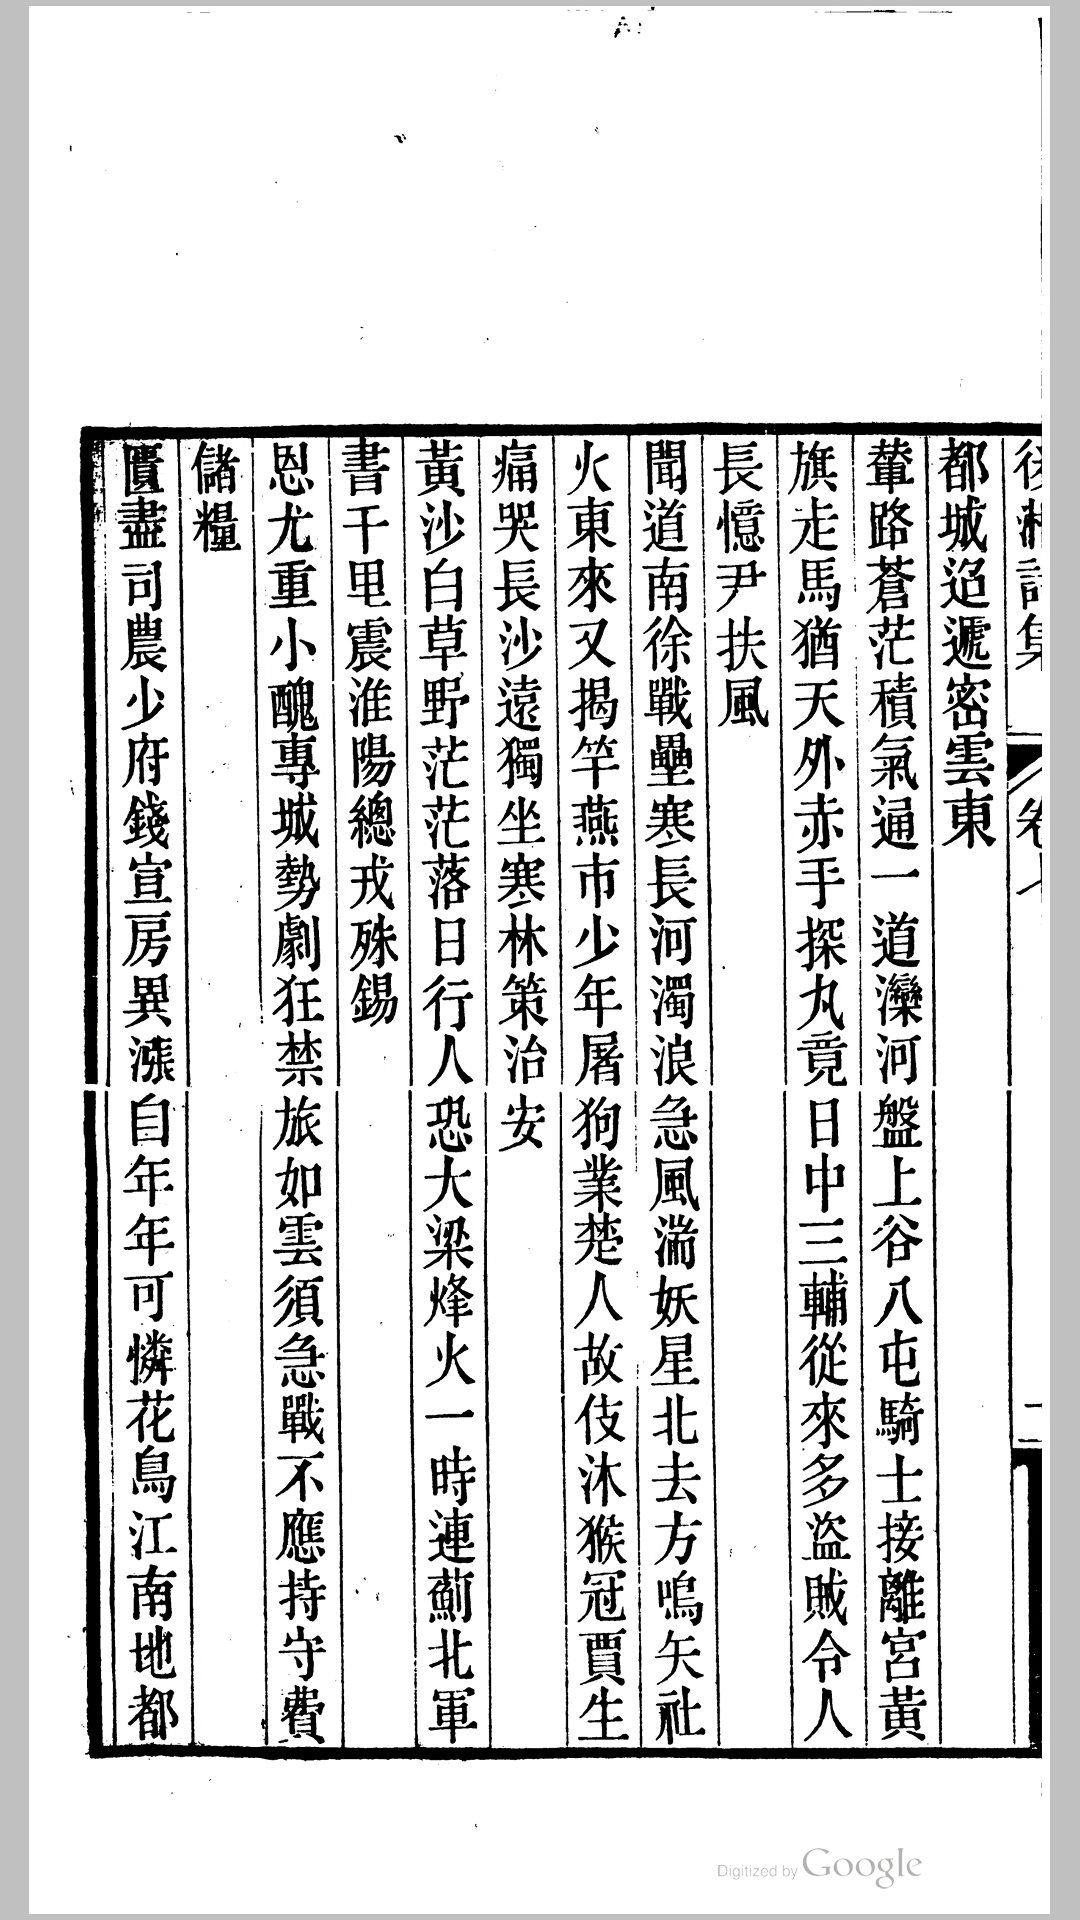 都城迢遞密雲東
輦路蒼茫積氣通一道灤河盤上谷八屯騎士接離宮黃
旗走馬猶天外赤手探丸竟日中三輔從來多盜賊令人
長憶尹扶風
聞道南徐戰壘寒長河濁浪急風湍妖星北去方嗚矢社
火東來又揭竿燕市少年屠狗業楚人故伎沐猴冠賈生
痛哭長沙遠獨坐寒林策治安
黃沙白草野茫茫落日行人恐大梁烽火一時連薊北軍
書千里震淮陽總戎殊錫
恩尤重小醜專城勢劇狂禁旅如雲須急戰不應持守費
儲糧
匱盡司農少府錢宣房異漲自年年可憐花鳥江南地都
Digitized by Google